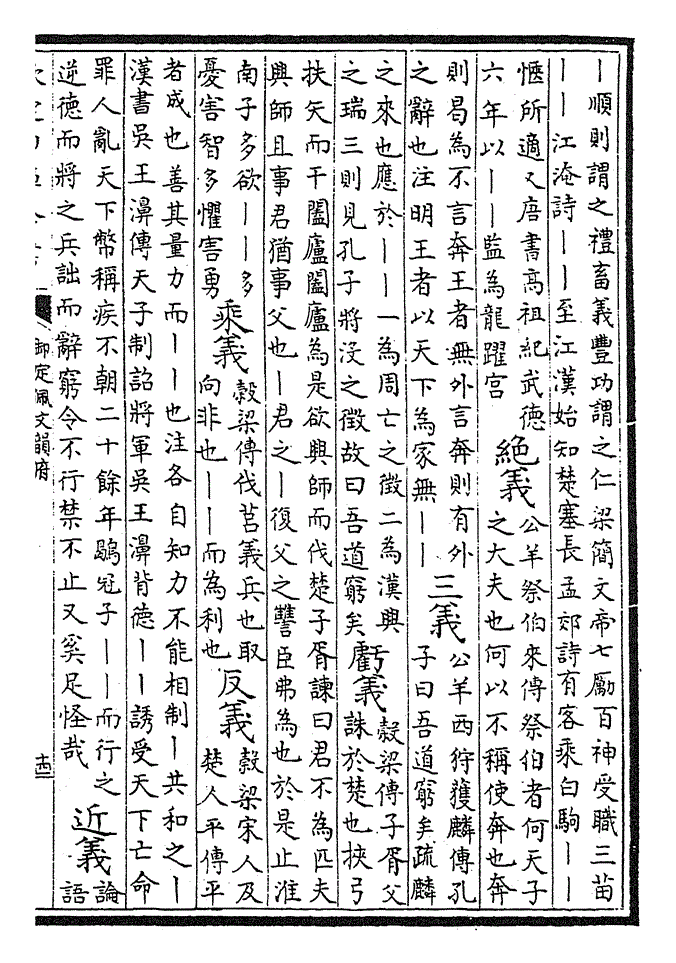 ｜順則謂之禮畜義豐功謂之仁梁簡文帝七勵百神受職三苗
｜｜江淹詩｜｜至江漢始知楚塞長孟郊詩有客乘白駒｜｜
愜所適又唐書高祖紀武德
六年以｜｜監為龍躍宮
絕義
公羊祭伯來傳祭伯者何天子
之大夫也何以不稱使奔也奔
則曷為不言奔王者無外言奔則有外
之辭也注明王者以天下為家無｜｜
三義
公羊西狩獲麟傳孔
子曰吾道窮矣疏麟
之來也應於｜｜一為周亡之徵二為漢興
之瑞三則見孔子將沒之徵故曰吾道窮矣
虧義
穀梁傳子胥父
誅於楚也挾弓
扶矢而干闔廬闔廬為是欲興師而伐楚子胥諫曰君不為匹夫
興師且事君猶事父也｜君之｜復父之讐臣弗為也於是止淮
南子多欲｜｜多
憂害智多懼害勇
乘義
穀梁傳伐莒義兵也取
向非也｜｜而為利也
反義
穀梁宋人及
楚人平傳平
者成也善其量力而｜｜也注各自知力不能相制｜共和之｜
漢書吳王濞傳天子制詔將軍吳王濞背德｜｜誘受天下亡命
罪人亂天下幣稱疾不朝二十餘年鶡冠子｜｜而行之
逆德而將之兵詘而辭窮令不行禁不止又奚足怪哉
近義
論
語
御定佩文韻府
十四